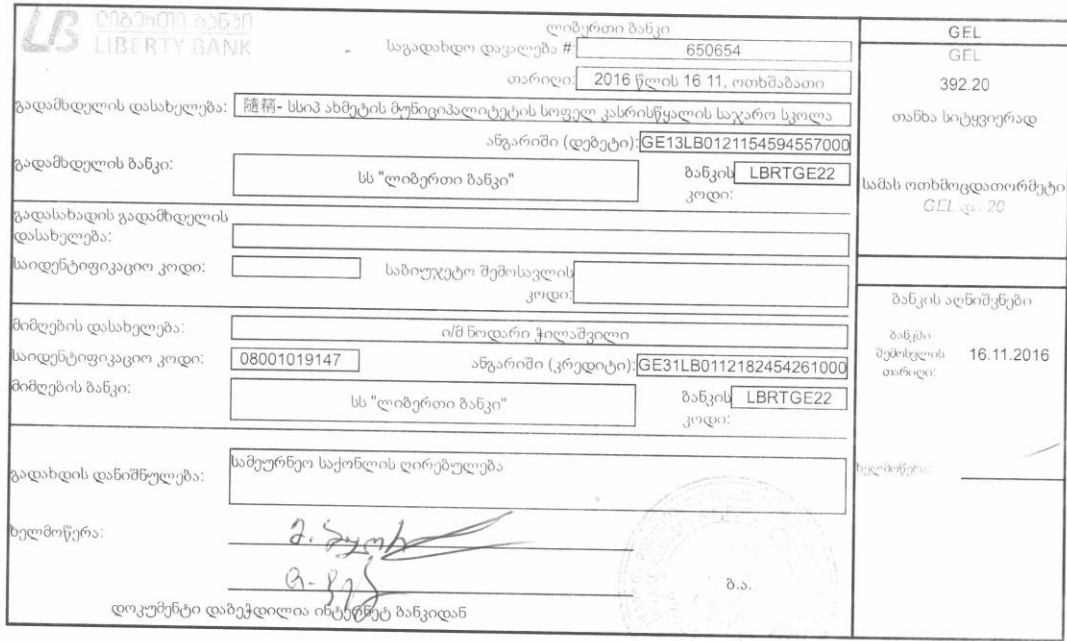 ლიბერთი ბანკი
LIBERTY BANK
ლიბერთი ბანკი
საგადახდო დავალება #: 650654
თარიღი: 2016 წლის 16 11, ოთხშაბათი
გადამხდელის დასახელება: 隨稱- სსიპ ახმეტის მუნიციპალიტეტის სოფელ კასრისწყალის საჯარო სკოლა
ანგარიში (დებეტი): GE13LB0121154594557000
გადამხდელის ბანკი: სს "ლიბერთი ბანკი" ბანკის კოდი: LBRTGE22
გადასახადის გადამხდელის დასახელება:
საიდენტიფიკაციო კოდი: საბიუჯეტო შემოსავლის კოდი:
მიმღების დასახელება: ი/მ ნოდარი ჭილაშვილი
საიდენტიფიკაციო კოდი: 08001019147 ანგარიში (კრედიტი): GE31LB0112182454261000
მიმღების ბანკი: სს "ლიბერთი ბანკი" ბანკის კოდი: LBRTGE22
გადახდის დანიშნულება: სამეურნეო საქონლის ღირებულება
ხელმოწერა:
ბ.ა.
დოკუმენტი დაბეჭდილია ინტერნეტ ბანკიდან
GEL
GEL
392.20
თანხა სიტყვიერად
სამას ოთხმოცდათორმეტი
GEL და 20
ბანკის აღნიშვნები
ბანკში
შემოსვლის 16.11.2016
თარიღი:
ხელმოწერა: